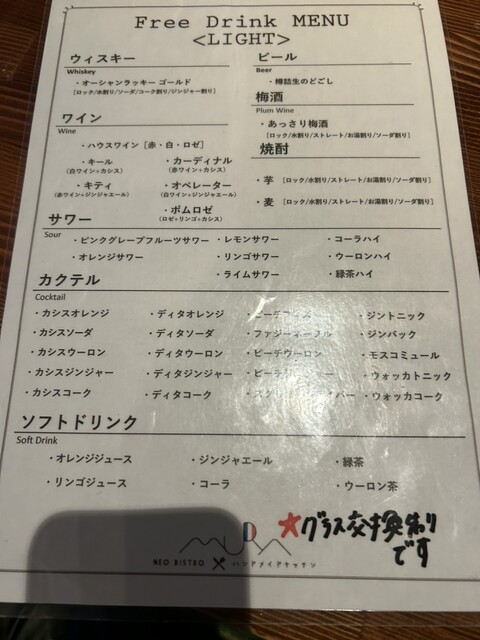 Free Drink MENU
<LIGHT>
ウィスキー
Whiskey
・オーシャンラッキー ゴールド
[ロック/水割り/ソーダ/コーク割り/ジンジャー割り]
ビール
Beer
・樽詰生のどごし
梅酒
Plum Wine
・あっさり梅酒
[ロック/水割り/ストレート/お湯割り/ソーダ割り]
ワイン
Wine
・ハウスワイン [赤・白・ロゼ]
・キール
(白ワイン+カシス)
・カーディナル
(赤ワイン+カシス)
・キティ
(赤ワイン+ジンジャエール)
・オペレーター
(白ワイン+ジンジャエール)
・ポムロゼ
(ロゼ+リンゴ+カシス)
焼酎
・芋 [ロック/水割り/ストレート/お湯割り/ソーダ割り]
・麦 [ロック/水割り/ストレート/お湯割り/ソーダ割り]
サワー
Sour
・ピンクグレープフルーツサワー ・レモンサワー ・コーラハイ
・オレンジサワー ・リンゴサワー ・ウーロンハイ
・ライムサワー ・緑茶ハイ
カクテル
Cocktail
・カシスオレンジ ・ディタオレンジ ・ジントニック
・カシスソーダ ・ディタソーダ ・ファジーネーブル ・ジンバック
・カシスウーロン ・ディタウーロン ・ピーチウーロン ・モスコミュール
・カシスジンジャー ・ディタジンジャー ・ウォッカトニック
・カシスコーク ・ディタコーク ・ウォッカコーク
ソフトドリンク
Soft Drink
・オレンジジュース ・ジンジャエール ・緑茶
・リンゴジュース ・コーラ ・ウーロン茶
★グラス交換制り
です
MURA
NEO BISTRO ハンドメイドキッチン